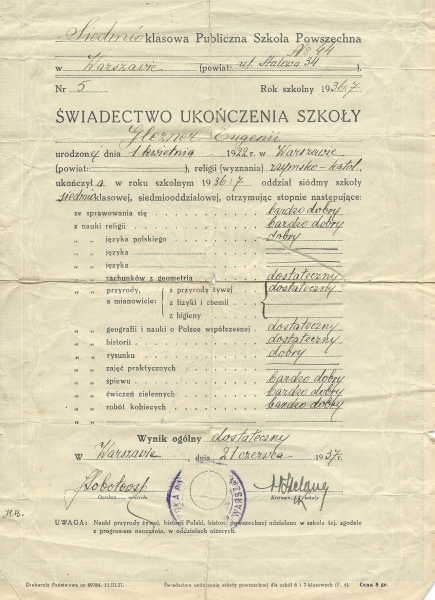 Siedmio klasowa Publiczna Szkoła Powszechna
№ 44
w Warszawie (powiat: ul. Stalowa 34)
Nr 5 Rok szkolny 1936/7
ŚWIADECTWO UKOŃCZENIA SZKOŁY
Glezner Eugenii
urodzonej dnia 1 kwietnia 1922 r. w Warszawie
(powiat: ), religii (wyznania) rzymsko-katol.
ukończyła w roku szkolnym 1936/7 oddział siódmy szkoły
siedmioklasowej, siedmiooddziałowej, otrzymując stopnie następujące:
ze sprawowania się bardzo dobry
z nauki religii bardzo dobry
„ „ języka polskiego dobry
„ „ języka
„ „ języka
„ „ rachunków z geometrią dostateczny
„ „ przyrody, z przyrody żywej dostateczny
„ „ a mianowicie: z fizyki i chemii
z higieny
„ „ geografii i nauki o Polsce współczesnej dostateczny
„ „ historii dostateczny
„ „ rysunku dobry
„ „ zajęć praktycznych
„ „ śpiewu bardzo dobry
„ „ ćwiczeń cielesnych bardzo dobry
„ „ robót kobiecych bardzo dobry
Wynik ogólny dostateczny
W Warszawie, dnia 21 czerwca 1937 r.
Opiekun oddziału Kierown. szkoły
UWAGA: Nauki przyrody żywej, historii Polski, histori powszechnej udzielano w szkole tej, zgodnie
z programem nauczania, w oddziałach niższych.
Drukarnia Państwowa nr 69784. 11.III.37. Świadectwo ukończenia szkoły powszechnej dla szkół 6 i 7-klasowych (F. 4). Cena 8 gr.